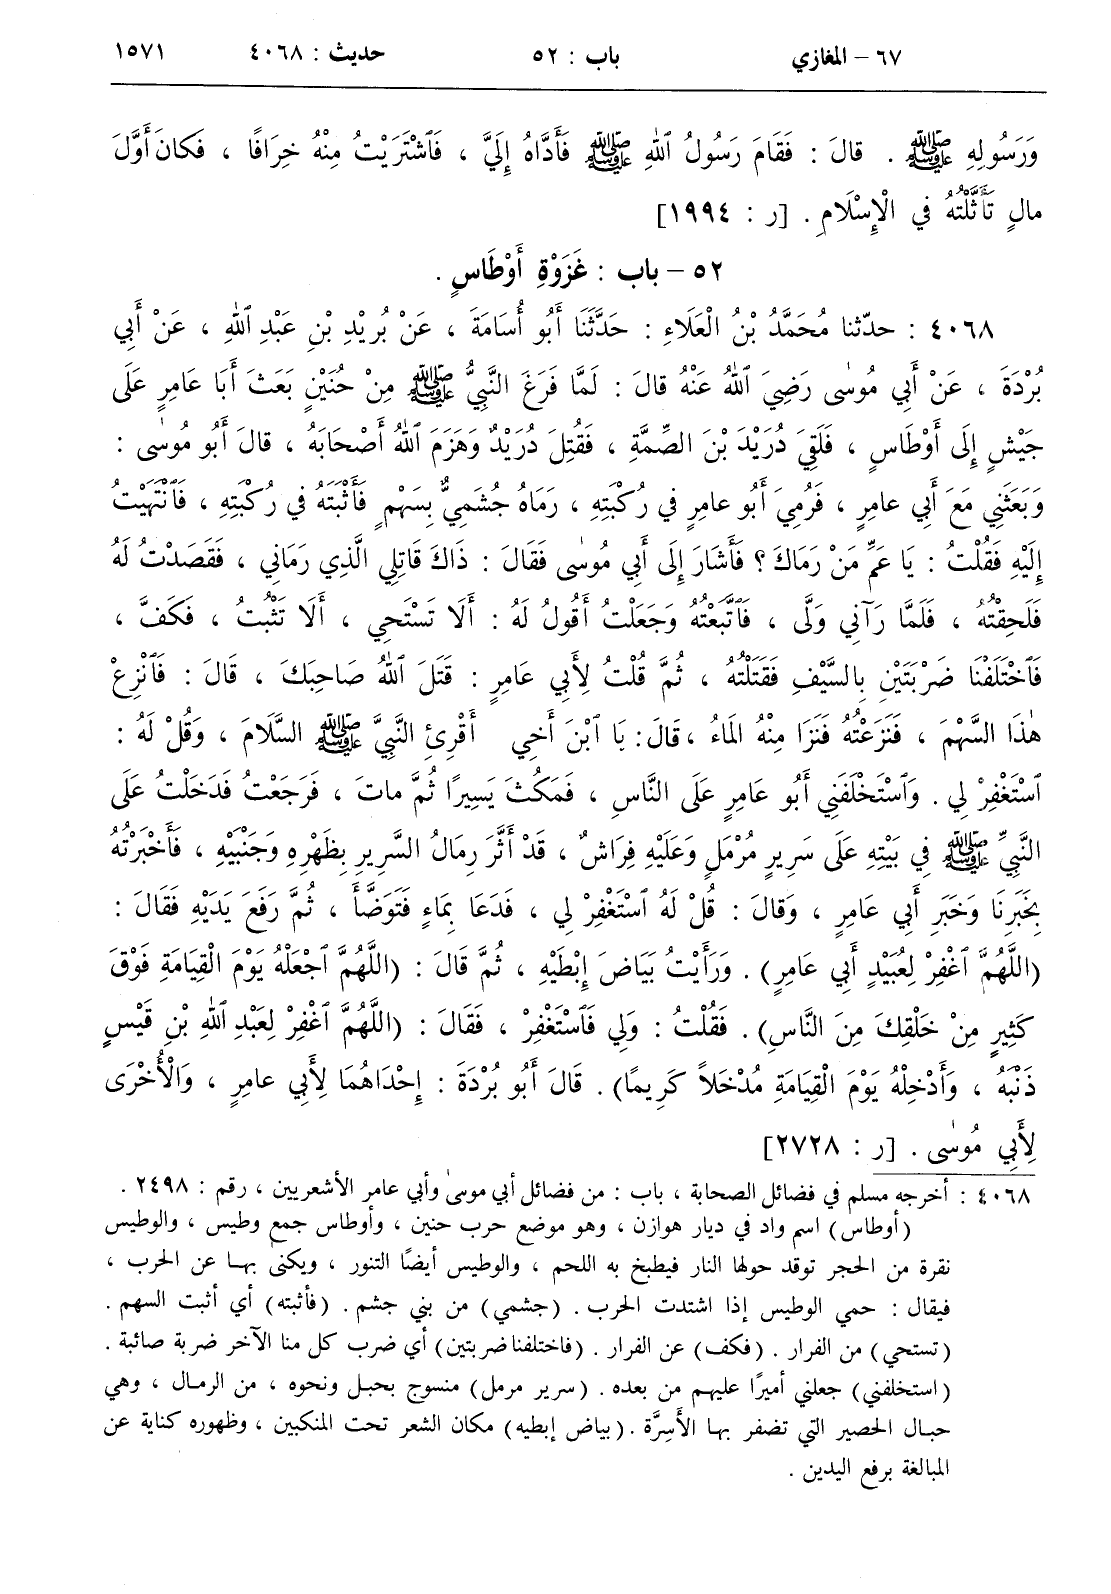 ٦٧ – المغازي باب : ٥٢ حديث : ٤٠٦٨ ١٥٧١
وَرَسُولِهِ ﷺ . قالَ : فَقَامَ رَسُولُ ٱللهِ ﷺ فَأَدَّاهُ إِلَيَّ ، فَٱشْتَرَيْتُ مِنْهُ خِرَافًا ، فَكانَ أَوَّلَ
مالٍ تَأَثَّلْتُهُ في الْإِسْلَامِ . [ر : ١٩٩٤]
٥٢ – باب : غَزْوَةِ أَوْطَاسٍ .
٤٠٦٨ : حدّثنا مُحَمَّدُ بْنُ الْعَلَاءِ : حَدَّثَنَا أَبُو أُسَامَةَ ، عَنْ بُرَيْدِ بْنِ عَبْدِ ٱللهِ ، عَنْ أَبِي
بُرْدَةَ ، عَنْ أَبِي مُوسٰى رَضِيَ ٱللهُ عَنْهُ قالَ : لَمَّا فَرَغَ النَّبِيُّ ﷺ مِنْ حُنَيْنٍ بَعَثَ أَبَا عامِرٍ عَلَى
جَيْشٍ إِلَى أَوْطَاسٍ ، فَلَقِيَ دُرَيْدَ بْنَ الصِّمَّةِ ، فَقُتِلَ دُرَيْدٌ وَهَزَمَ ٱللهُ أَصْحَابَهُ ، قالَ أَبُو مُوسٰى :
وَبَعَثَنِي مَعَ أَبِي عامِرٍ ، فَرُمِيَ أَبُو عامِرٍ في رُكْبَتِهِ ، رَمَاهُ جُشَمِيٌّ بِسَهْمٍ فَأَثْبَتَهُ في رُكْبَتِهِ ، فَٱنْتَهَيْتُ
إِلَيْهِ فَقُلْتُ : يَا عَمِّ مَنْ رَمَاكَ ؟ فَأَشَارَ إِلَى أَبِي مُوسٰى فَقَالَ : ذَاكَ قاتِلِي الَّذِي رَمَانِي ، فَقَصَدْتُ لَهُ
فَلَحِقْتُهُ ، فَلَمَّا رَآنِي وَلَّى ، فَٱتَّبَعْتُهُ وَجَعَلْتُ أَقُولُ لَهُ : أَلَا تَسْتَحِي ، أَلَا تَثْبُتُ ، فَكَفَّ ،
فَٱخْتَلَفْنَا ضَرْبَتَيْنِ بِالسَّيْفِ فَقَتَلْتُهُ ، ثُمَّ قُلْتُ لِأَبِي عامِرٍ : قَتَلَ ٱللهُ صَاحِبَكَ ، قَالَ : فَٱنْزِعْ
هٰذَا السَّهْمَ ، فَنَزَعْتُهُ فَنَزَا مِنْهُ المَاءُ ، قالَ : يَا ٱبْنَ أَخِي أَقْرِئِ النَّبِيَّ ﷺ السَّلَامَ ، وَقُلْ لَهُ :
ٱسْتَغْفِرْ لِي . وَٱسْتَخْلَفَنِي أَبُو عامِرٍ عَلَى النَّاسِ ، فَمَكُثَ يَسِيرًا ثُمَّ ماتَ ، فَرَجَعْتُ فَدَخَلْتُ عَلَى
النَّبِيِّ ﷺ في بَيْتِهِ عَلَى سَرِيرٍ مُرْمَلٍ وَعَلَيْهِ فِرَاشٌ ، قَدْ أَثَّرَ رِمَالُ السَّرِيرِ بِظَهْرِهِ وَجَنْبَيْهِ ، فَأَخْبَرْتُهُ
بِخَبَرِنَا وَخَبَرِ أَبِي عامِرٍ ، وَقالَ : قُلْ لَهُ ٱسْتَغْفِرْ لِي ، فَدَعَا بِمَاءٍ فَتَوَضَّأَ ، ثُمَّ رَفَعَ يَدَيْهِ فَقَالَ :
(اللَّهُمَّ ٱغْفِرْ لِعُبَيْدٍ أَبِي عَامِرٍ) . وَرَأَيْتُ بَيَاضَ إِبْطَيْهِ ، ثُمَّ قَالَ : (اللَّهُمَّ ٱجْعَلْهُ يَوْمَ الْقِيَامَةِ فَوْقَ
كَثِيرٍ مِنْ خَلْقِكَ مِنَ النَّاسِ) . فَقُلْتُ : وَلِي فَٱسْتَغْفِرْ ، فَقَالَ : (اللَّهُمَّ ٱغْفِرْ لِعَبْدِ ٱللهِ بْنِ قَيْسٍ
ذَنْبَهُ ، وَأَدْخِلْهُ يَوْمَ الْقِيَامَةِ مُدْخَلاً كَرِيمًا) . قَالَ أَبُو بُرْدَةَ : إِحْدَاهُمَا لِأَبِي عامِرٍ ، وَالْأُخْرَى
لِأَبِي مُوسٰى . [ر : ٢٧٢٨]
٤٠٦٨ : أخرجه مسلم في فضائل الصحابة ، باب : من فضائل أبي موسىٰ وأبي عامر الأشعريين ، رقم : ٢٤٩٨ .
(أوطاس) اسم واد في ديار هوازن ، وهو موضع حرب حنين ، وأوطاس جمع وطيس ، والوطيس
نقرة من الحجر توقد حولها النار فيطبخ به اللحم ، والوطيس أيضًا التنور ، ويكنى بها عن الحرب ،
فيقال : حمي الوطيس إذا اشتدت الحرب . (جشمي) من بني جشم . (فأثبته) أي أثبت السهم .
(تستحي) من الفرار . (فكف) عن الفرار . (فاختلفنا ضربتين) أي ضرب كل منا الآخر ضربة صائبة .
(استخلفني) جعلني أميرًا عليهم من بعده . (سرير مرمل) منسوج بحبل ونحوه ، من الرمال ، وهي
حبال الحصير التي تضفر بها الأَسِرَّة . (بياض إبطيه) مكان الشعر تحت المنكبين ، وظهوره كناية عن
المبالغة برفع اليدين .